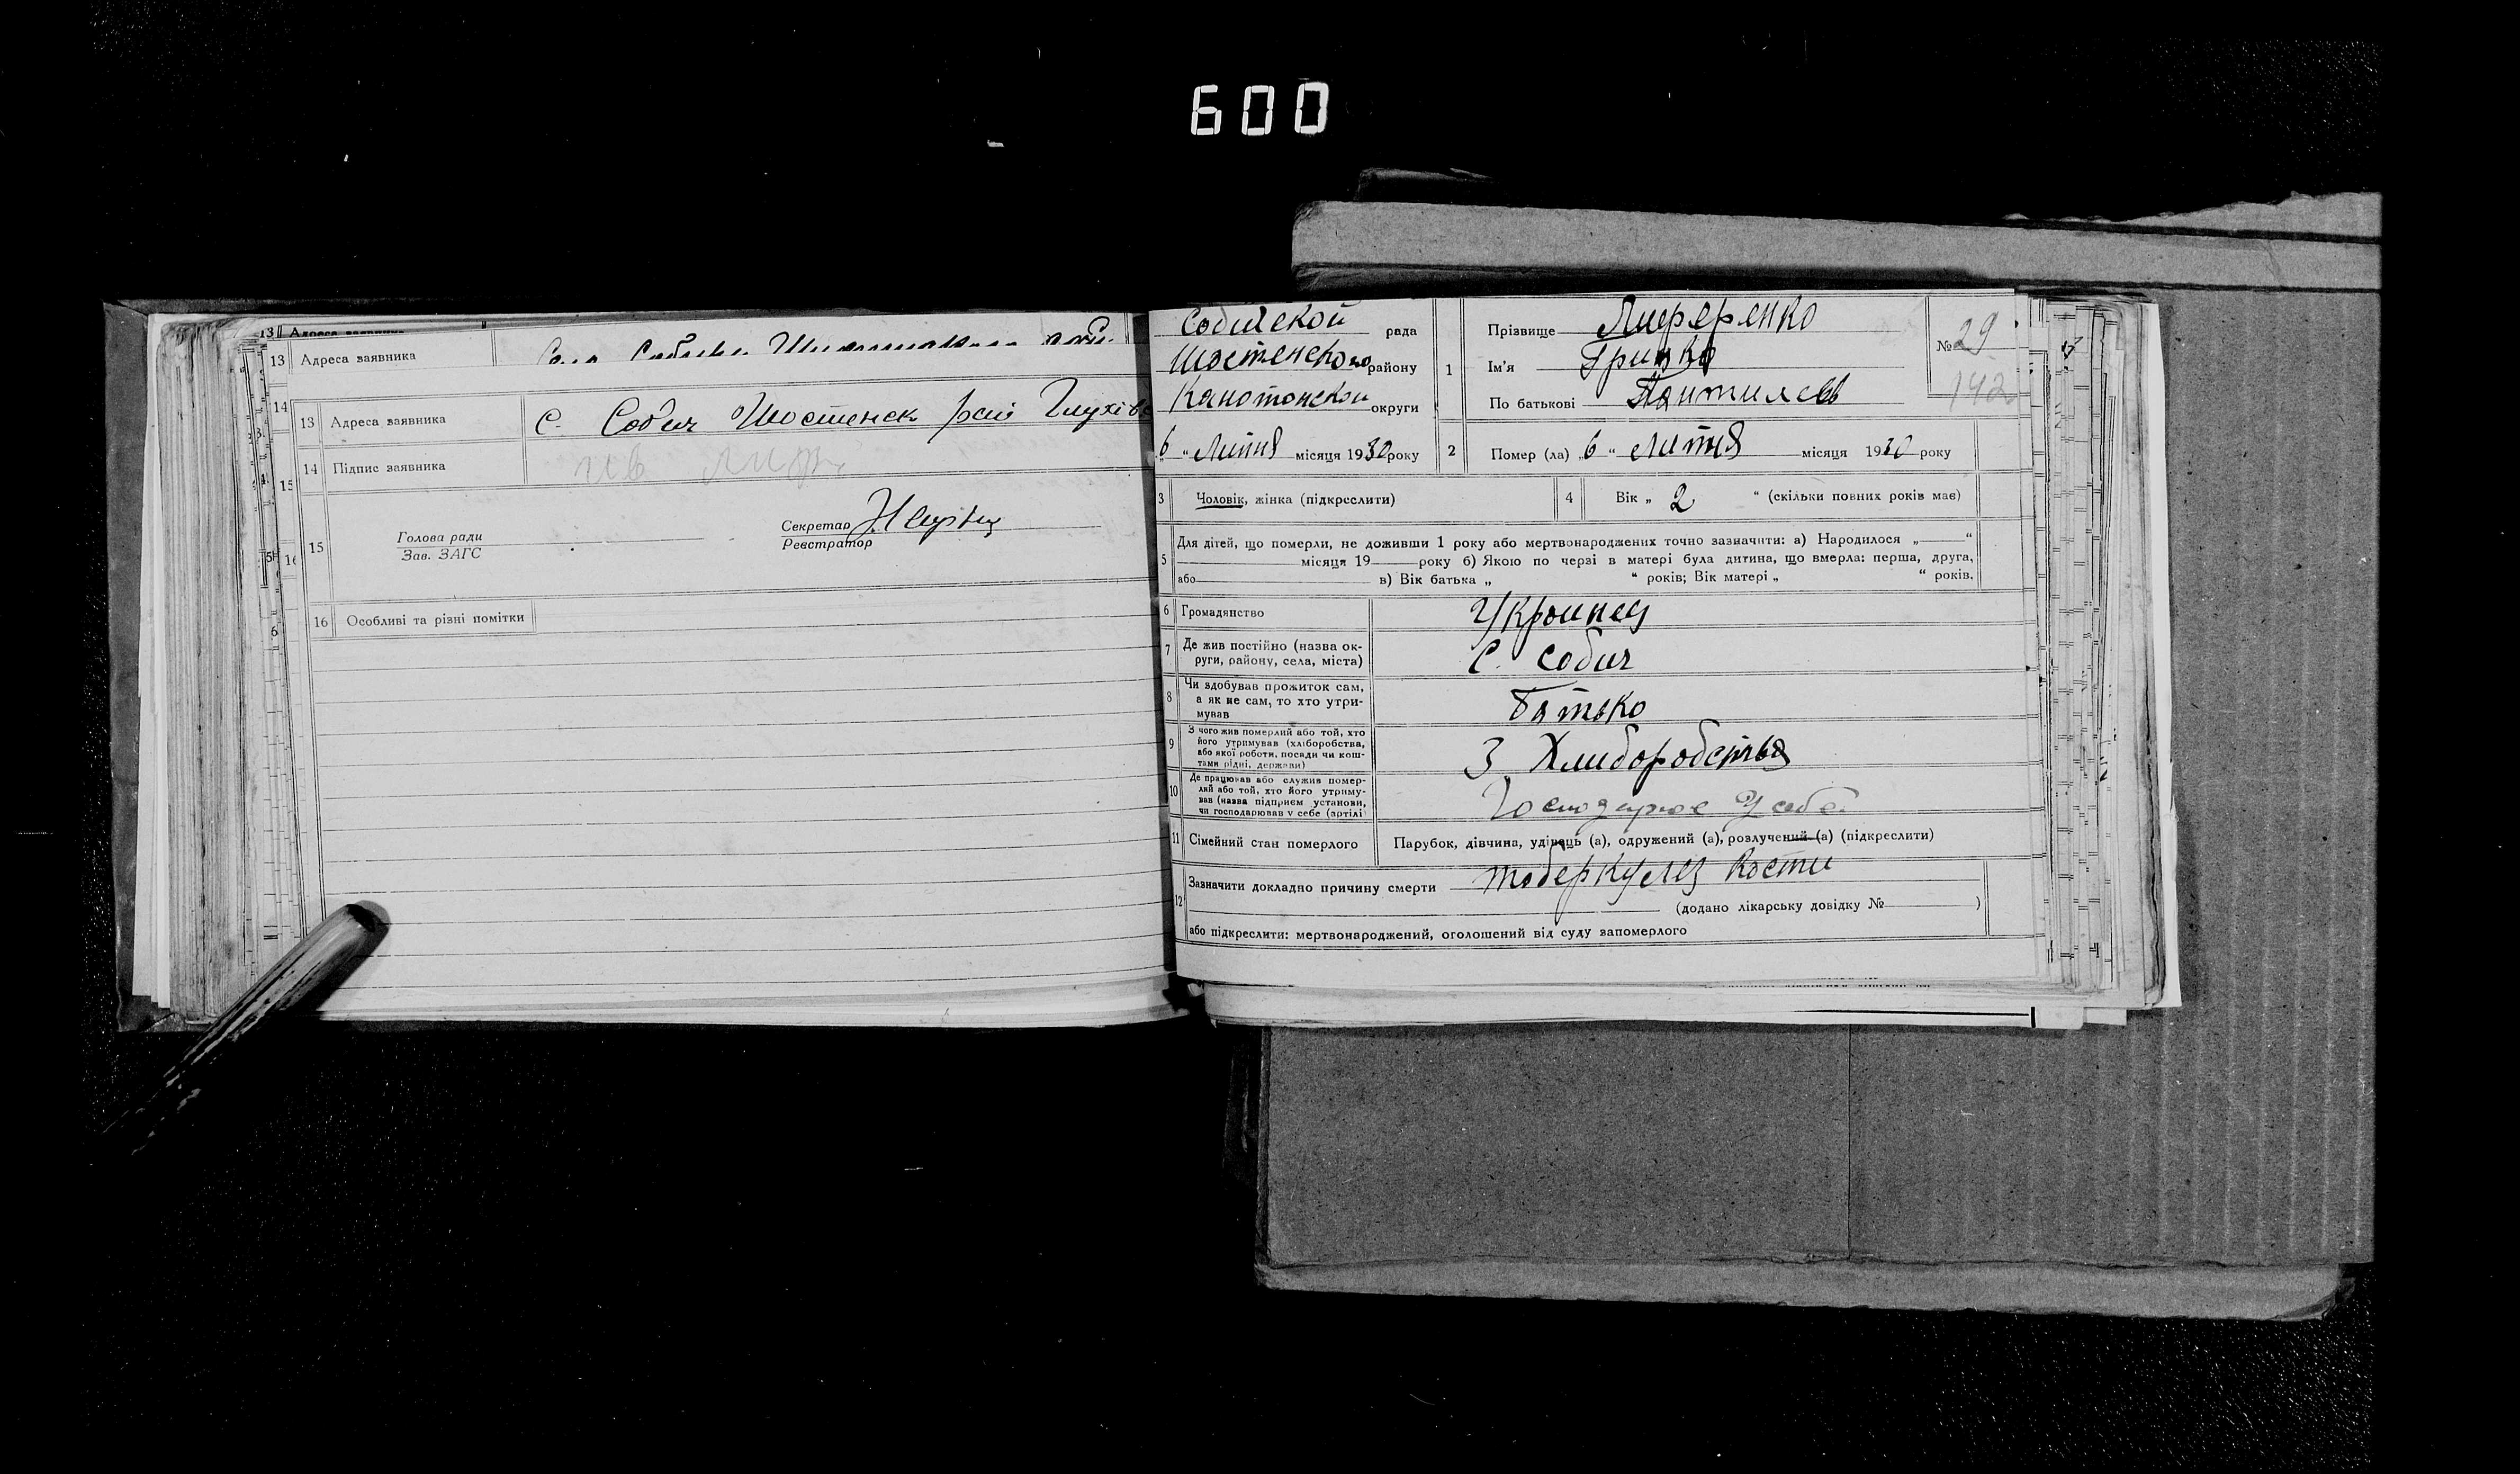 600
13 Адреса заявника
13 Адреса заявника С. Собич Шостенск рай Глухів
14 Підпис заявника
15 Голова ради
Зав. ЗАГС
Секретар
Реєстратор
16 Особливі та різні помітки
Собической рада
Шостенского району
Канотопской округи
6 " Липня місяця 1930 року
1 Прізвище Лиференко
Ім'я Гришко
По батькові Пантилєєв
№ 29
142
2 Помер (ла) „6 " липня місяця 1930 року
3 Чоловік, жінка (підкреслити)
4 Вік „ 2 " (скільки повних років має)
5 Для дітей, що померли, не доживши 1 року або мертвонароджених точно зазначити: а) Народилося „ "
місяця 19 року б) Якою по черзі в матері була дитина, що вмерла: перша, друга,
або в) Вік батька „ " років; Вік матері „ " років.
6 Громадянство Украинец
7 Де жив постійно (назва ок-
руги, району, села, міста) С. Собич
8 Чи здобував прожиток сам,
а як не сам, то хто утри-
мував Батько
9 З чого жив померлий або той, хто
його утримував (хліборобства,
або якої роботи, посади чи кош-
тами рідні, держави) З Хлиборобства
10 Де працював або служив помер-
лий або той, хто його утриму-
вав (назва підприєм установи,
чи господарював у себе (артілі) Господарює У себе
11 Сімейний стан померлого Парубок, дівчина, удівець (а), одружений (а), розлучений (а) (підкреслити)
12 Зазначити докладно причину смерти тоберкулез кости
(додано лікарську довідку № )
або підкреслити: мертвонароджений, оголошений від суду запомерлого